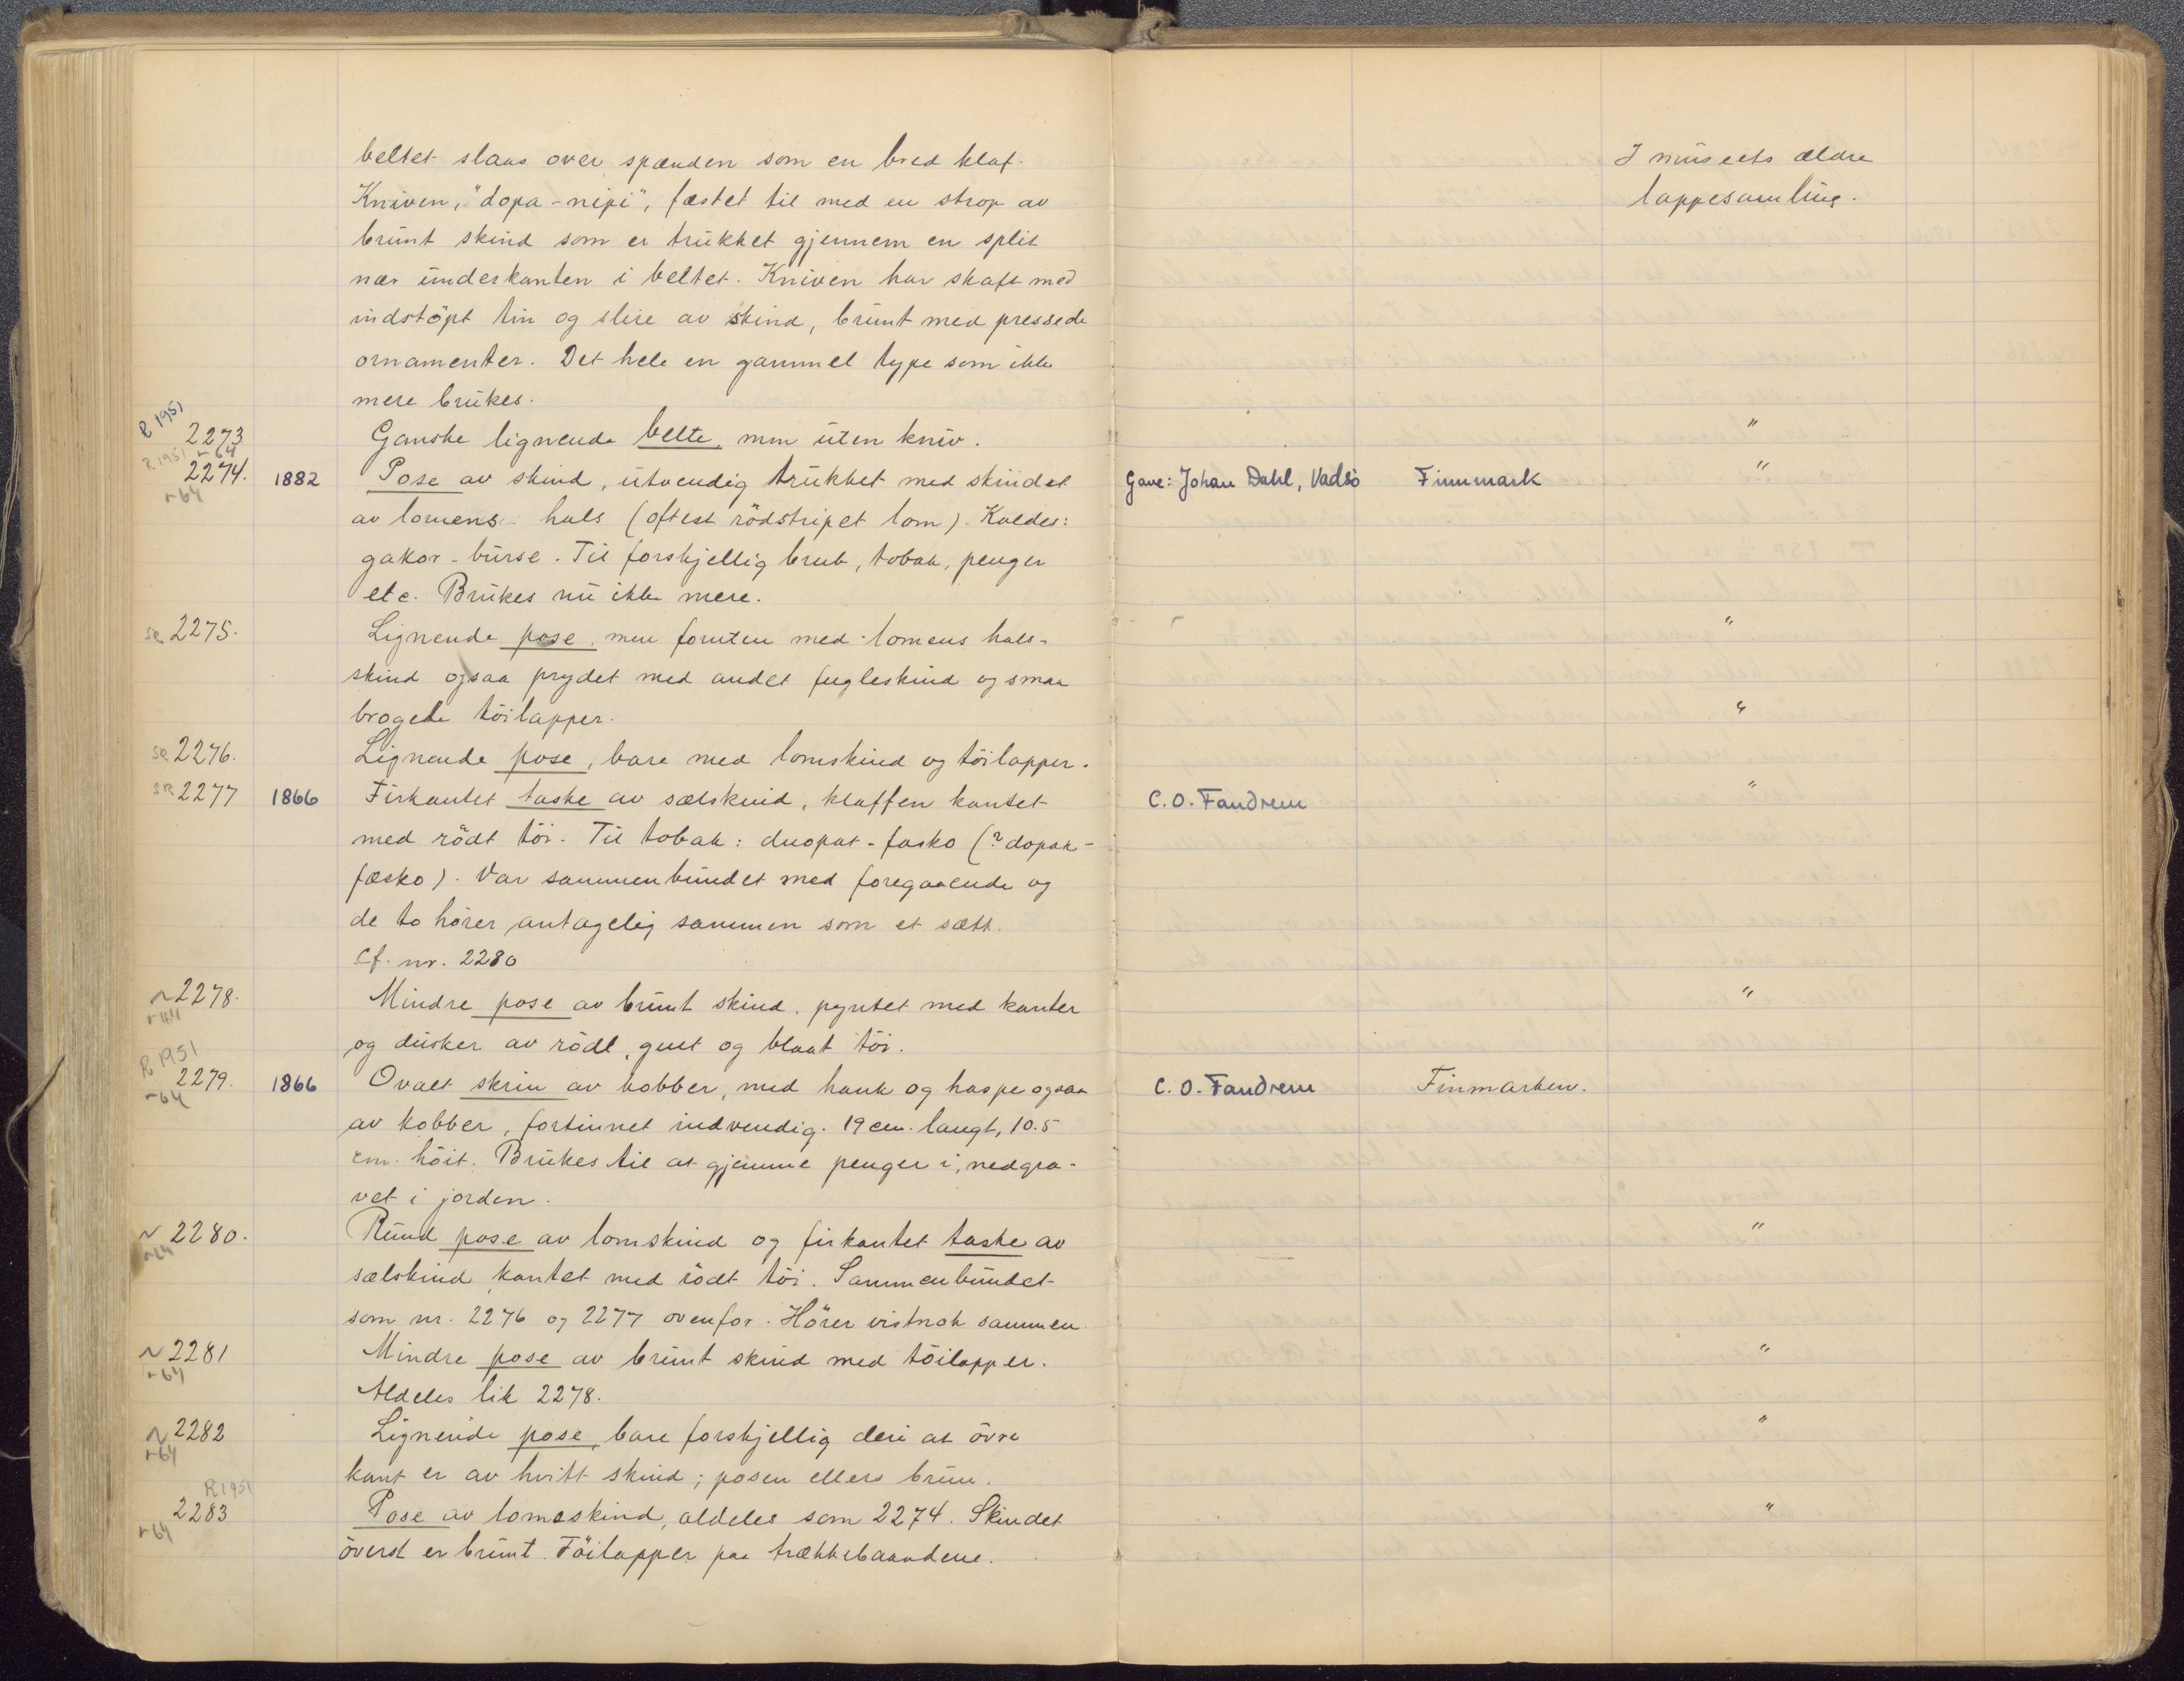 beltet slaas over spænden som en bred klaf. I museets ældre
Kniven, "dopa-nipi", fæstet til med en strop av lappesamling.
brunt skind som er trukket gjennem en split
nær underkanten i beltet. Kniven har skaft med
indstöpt tin og slire av skind, brunt med pressede
ornamenter. Det hele en gammel type som ikke
mere brukes.
R 1951
2273 Ganske lignende belte, men uten kniv. "
R 1951 -64
2274. 1882 Pose av skind, utvendig trukket med skindet Gave: Johan Dahl, Vadsö Finnmark "
-64
av lomens hals (oftest rödstripet lom). Kaldes:
gakor-burse. Til forskjellig bruk, tobak, penger
etc. Brukes nu ikke mere.
se 2275. Lignende pose, men foruten med lomens hals- "
skind ogsaa prydet med andet fugleskind og smaa
brogede töilapper. "
se 2276. Lignende pose, bare med lomskind og töilapper.
se 2277 1866 Firkantet taske av sælskind, klaffen kantet C.O. Fandrem "
med rödt töi. Til tobak: duopat-fasko (? dopak-
fæsko). Var sammenbundet med foregaaende og
de to hörer antagelig sammen som et sætt.
Cf. nr. 2280
2278. Mindre pose av brunt skind, pyntet med kanter "
-64
og dusker av rödt, gult og blaat töi.
R 1951
2279. 1866 Ovalt skrin av kobber, med hank og haspe ogsaa C.O. Fandrem Finmarken.
-64
av kobber, fortinnet indvendig. 19 cm. langt, 10.5
cm. höit. Brukes til at gjemme penger i, nedgra-
vet i jorden.
2280. Rund pose av lomskind og firkantet taske av "
-64
sælskind kantet med rödt töi. Sammenbundet
som nr. 2276 og 2277 ovenfor. Hörer vistnok sammen
2281 Mindre pose av brunt skind med töilapper. "
-64
Aldeles lik 2278.
2282 Lignende pose, bare forskjellig deri at övre "
-64
kant er av hvitt skind; posen ellers brun.
R 1951
2283 Pose av lomskind, aldeles som 2274. Skindet "
-64
överst er brunt. Töilapper paa trækkebaandene.